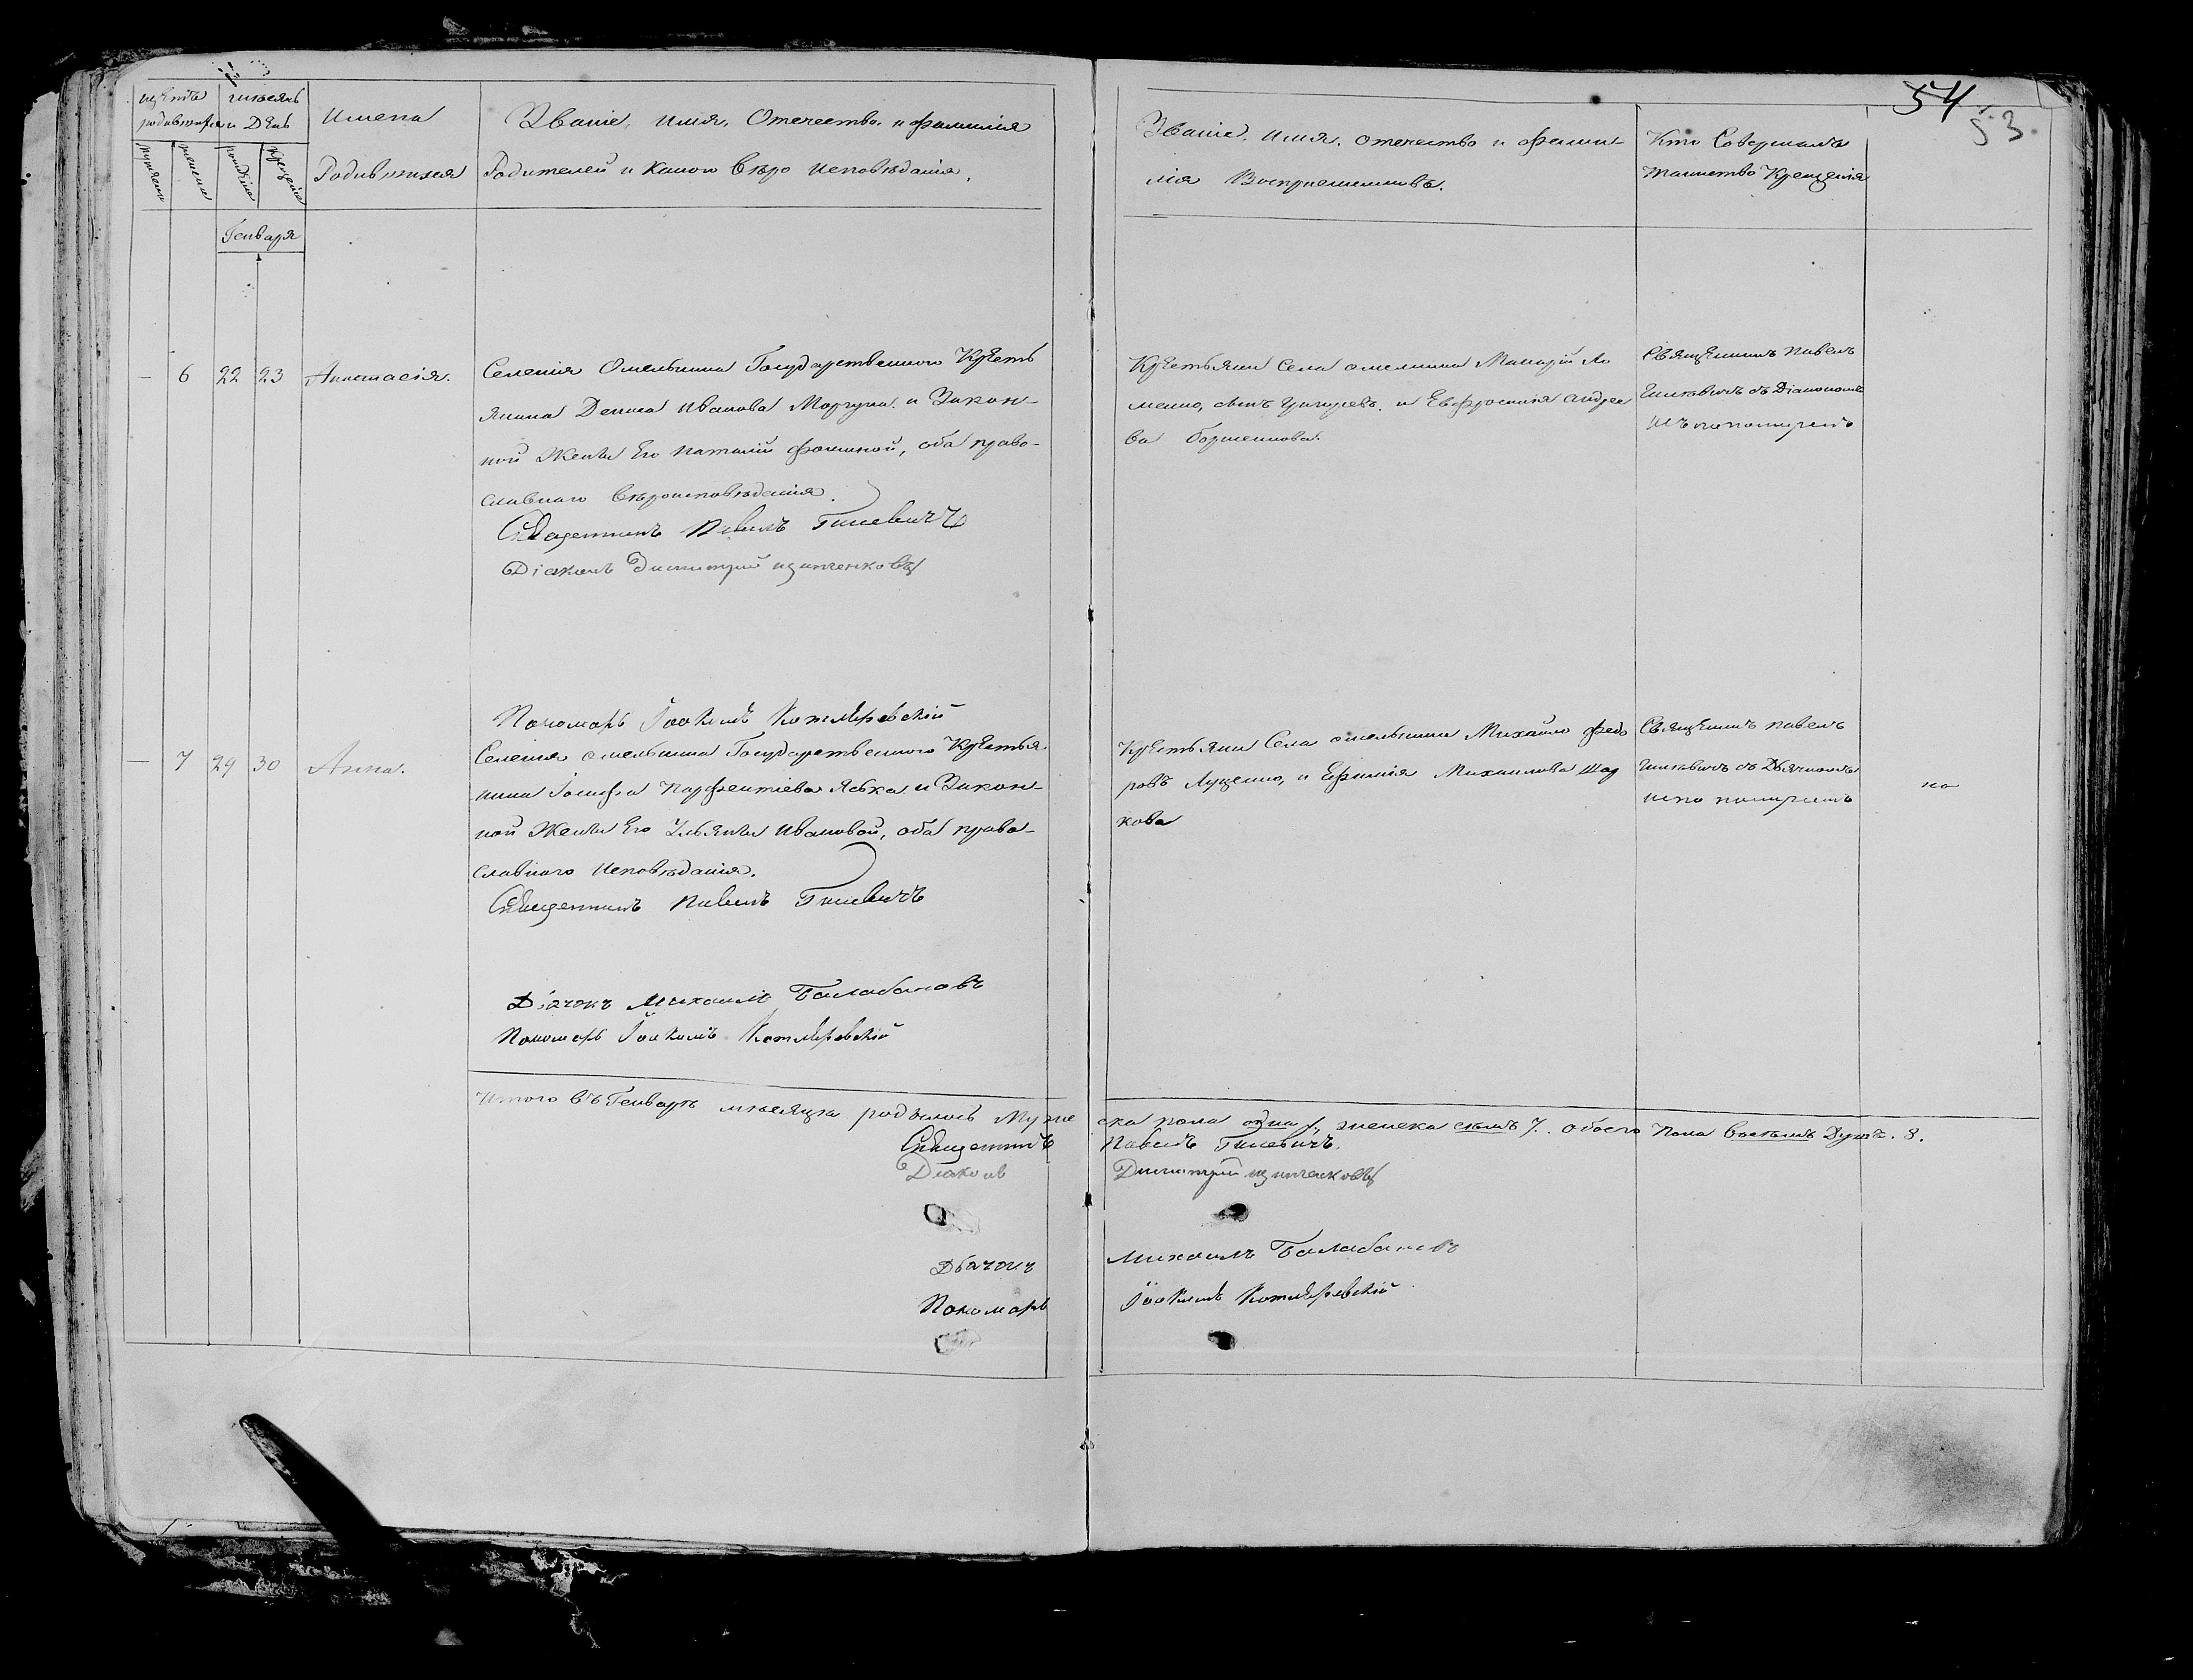 54
53
щетъ родившихся
мѣсяцъ и День
мужеска
женска
рожденія
крещенія
Имена
Родившихся
Званіе, имя, Отечество, и фамилія
Родителей и какого вѣро исповѣданія.
Званіе, имя, отечество и фами-
лія Воспріемниковъ.
Кто Совершалъ
таинство Крещенія
Генваря
— 6 22 23 Анастасія.
Селенія Омельника Государственного Крѣсть
янина Дениса Иванова Моргуна и Закон-
ной Жены Его Наталіи Фоминой, оба право-
славнаго вѣроисповѣданія.
Священникъ Павелъ Гилевичъ
Діаконъ Димитрій
Пономарь Іоакимъ Котляревскій
Крѣстьяни Села омельника Макарій Ло
менко, сынъ Григорьевъ, и Евфросинія Андрее
ва
Свящѣнникъ Павелъ
Гилевичъ съ Діакономъ
и пономаремъ
— 7 29 30 Анна.
Селенія омельника Государственного Крѣстья
нина Іосифа Парфентіева Ябка и Закон-
ной Жены Его Ульяны Ивановой, оба право-
славнаго Исповѣданія.
Священникъ Павелъ Гилевичъ
Діачокъ Михаилъ Балабановъ
Пономарь Іоакимъ Котляревскій
Крѣстьяни Села омельника Михайло Федо
ровъ Луценко, и Ефимія Михаилова
кова
Свящѣнникъ Павелъ
Гилевичъ съ Дьячкомъ
и пономаремъ
Итого въ Генварѣ мѣсяцѣ родилось Муже
ска пола одна 1, женска сѣмъ 7. обоего пола восѣмъ Душъ. 8.
Священникъ Павелъ Гилевичъ.
Діаконъ Димитрій
Дьячокъ Михаилъ Балабановъ
Пономарь Іоакимъ Котляревскій